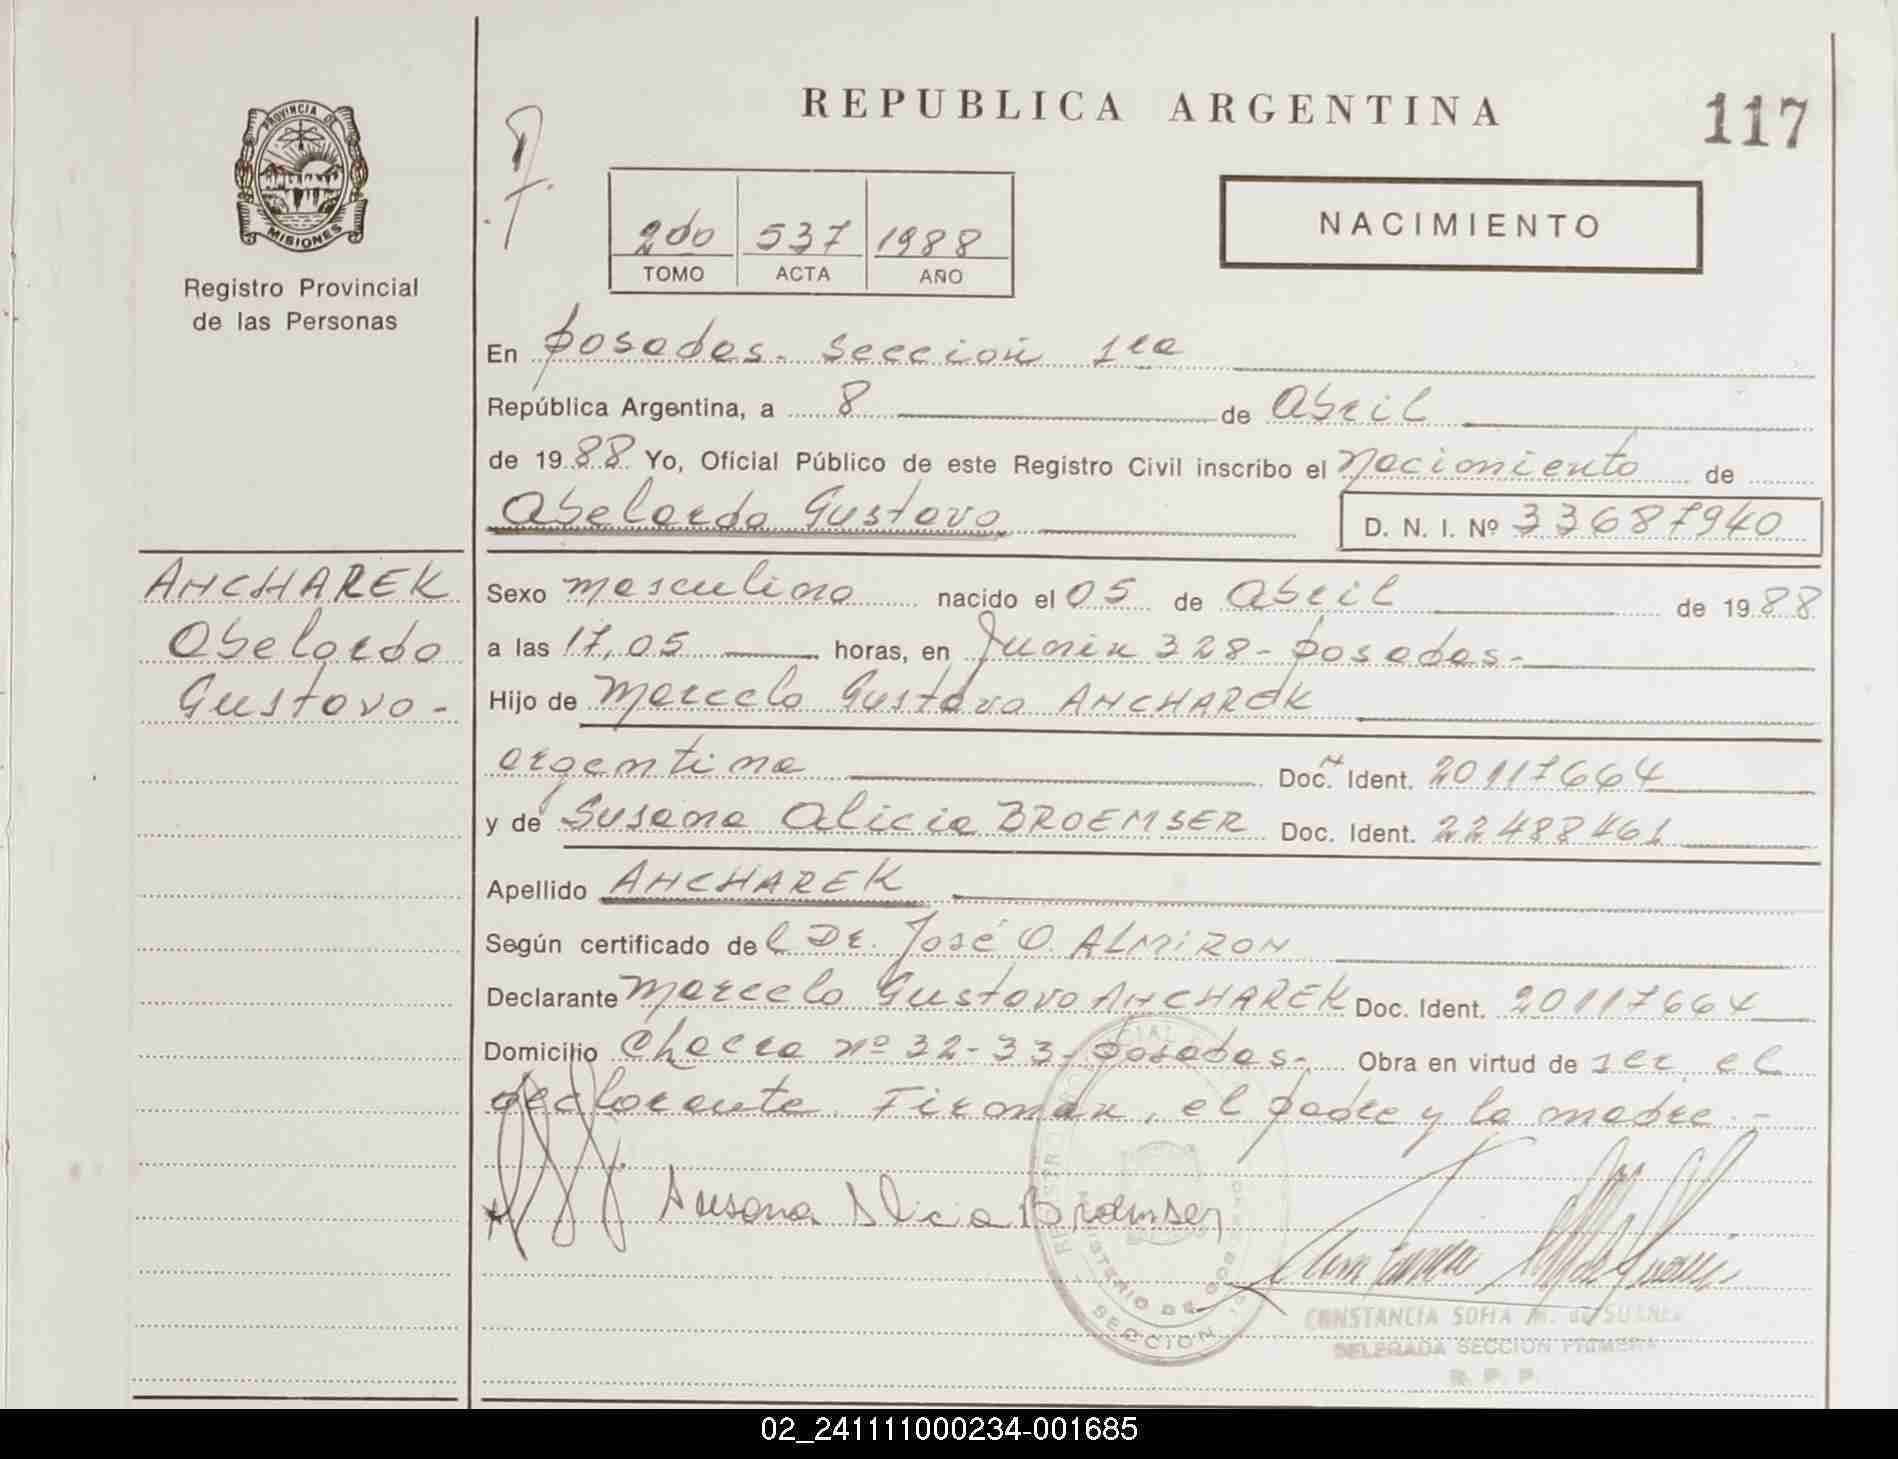 REPUBLICA ARGENTINA
117
PROVINCIA DE
MISIONES
Registro Provincial
de las Personas
200 537 1988
TOMO ACTA AÑO
NACIMIENTO
En Posadas. Sección 1ra
República Argentina, a 8 de Abril
de 1988 Yo, Oficial Público de este Registro Civil inscribo el Nacimiento de
Abelardo Gustavo D. N. I. Nº 33687940
ANCHAREK
Abelardo
Gustavo-
Sexo masculino nacido el 05 de Abril de 1988
a las 17,05 horas, en Junin 328- Posadas-
Hijo de Marcelo Gustavo ANCHAREK
argentino Doc. Ident. 20117664
y de Susana Alicia BROEMSER Doc. Ident. 22488461
Apellido ANCHAREK
Según certificado del Dr. José O. ALMIRON
Declarante Marcelo Gustavo ANCHAREK Doc. Ident. 20117664
Domicilio Chacra nº 32-33- Posadas- Obra en virtud de ser el
declarante. Firman, el padre y la madre.-
Susana Alicia Broemser
MINISTERIO DE
SECCION
CONSTANCIA SOFIA M. de SUAREZ
DELEGADA SECCION PRIMERA
R. P. P.
02_241111000234-001685